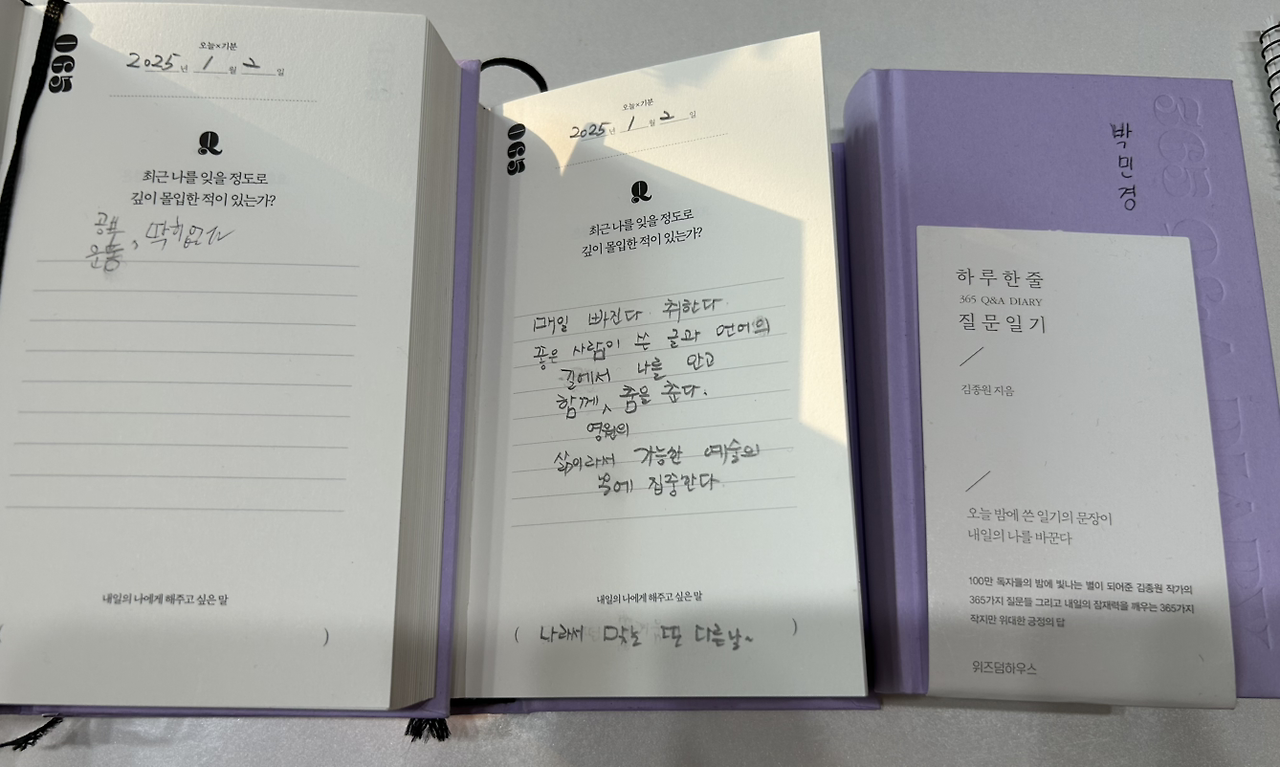 365
오늘×기분
2025년 1월 2일
Q
최근 나를 잊을 정도로
깊이 몰입한 적이 있는가?
공부
운동, 딱히없다
내일의 나에게 해주고 싶은 말
( )
365
오늘×기분
2025년 1월 2일
Q
최근 나를 잊을 정도로
깊이 몰입한 적이 있는가?
매일 빠진다 취한다
좋은 사람이 쓴 글과 언어의
길에서 나를 안고
함께, 춤을 춘다.
영원의
삶이라서 가능한 예술의
속에 집중한다
내일의 나에게 해주고 싶은 말
( 나라서 맞는 또 다른날~ )
박민경
365 Q&A DIARY
하루한줄
365 Q&A DIARY
질문일기
김종원 지음
오늘 밤에 쓴 일기의 문장이
내일의 나를 바꾼다
100만 독자들의 밤에 빛나는 별이 되어준 김종원 작가의
365가지 질문들 그리고 내일의 잠재력을 깨우는 365가지
작지만 위대한 긍정의 답
위즈덤하우스